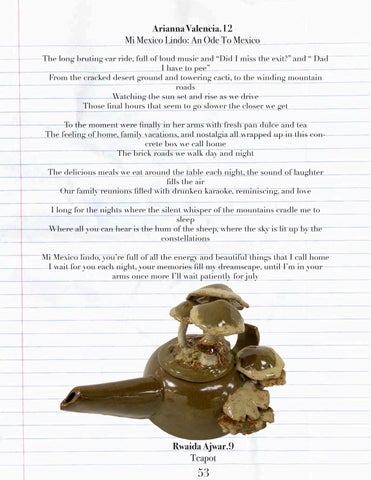 Arianna Valencia.12
Mi Mexico Lindo: An Ode To Mexico
The long bruting car ride, full of loud music and “Did I miss the exit?” and “ Dad
I have to pee”
From the cracked desert ground and towering cacti, to the winding mountain
roads
Watching the sun set and rise as we drive
Those final hours that seem to go slower the closer we get
To the moment were finally in her arms with fresh pan dulce and tea
The feeling of home, family vacations, and nostalgia all wrapped up in this con-
crete box we call home
The brick roads we walk day and night
The delicious meals we eat around the table each night, the sound of laughter
fills the air
Our family reunions filled with drunken karaoke, reminiscing, and love
I long for the nights where the silent whisper of the mountains cradle me to
sleep
Where all you can hear is the hum of the sheep, where the sky is lit up by the
constellations
Mi Mexico lindo, you’re full of all the energy and beautiful things that I call home
I wait for you each night, your memories fill my dreamscape, until I’m in your
arms once more I’ll wait patiently for july
Rwaida Ajwar.9
Teapot
53